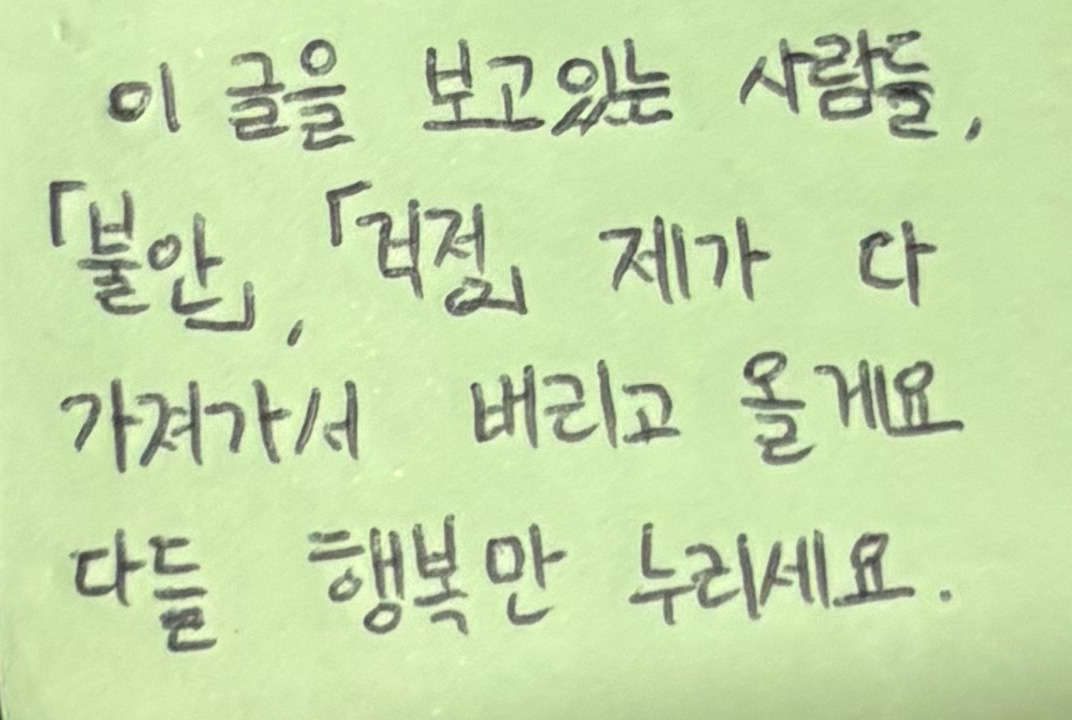 이 글을 보고있는 사람들,
「불안」, 「걱정」 제가 다
가져가서 버리고 올게요
다들 행복만 누리세요.